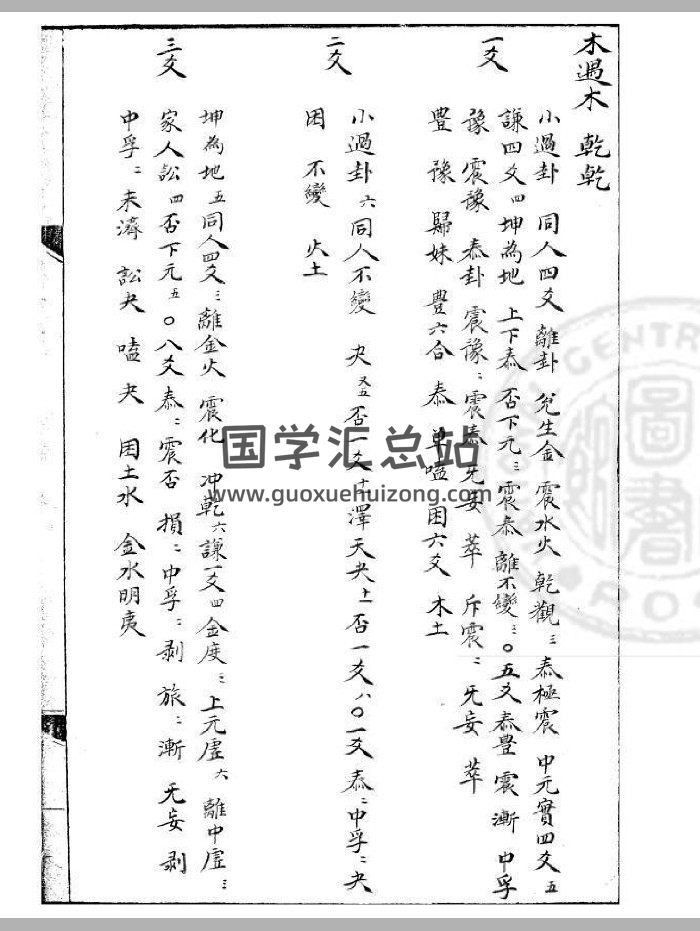 木過木 乾乾
一爻
小過卦 同人四爻 離卦 兌生金 震水火 乾觀三 泰極震 中元實四爻五
謙四爻四 坤為地 上下泰 否下元三 震泰 離不變三 〇五爻泰豐 震 漸 中孚
豫 震豫 泰卦 震豫二 震泰无妄 萃 斥震二 无妄 萃
豐 豫 歸妹 豐六合 泰 單嗑 困六爻 木土
二爻
小過卦六 同人不變 夬五 否一爻十 澤天夬上 否一爻八 〇一爻泰二 中孚二 夬
困 不變 火土
三爻
坤為地五 同人四爻三 離金火 震化 冲乾六 謙一爻四 金度三 上元虛六 離中虛三
家人訟四 否下元五 〇八爻泰二 震否 損二 中孚二 剥 旅二 漸 无妄 剥
中孚二 未濟 訟夬 嗑 夬 困土水 金水明夷
国学汇总站
www.guoxuehuizong.com
CENTR
圖書